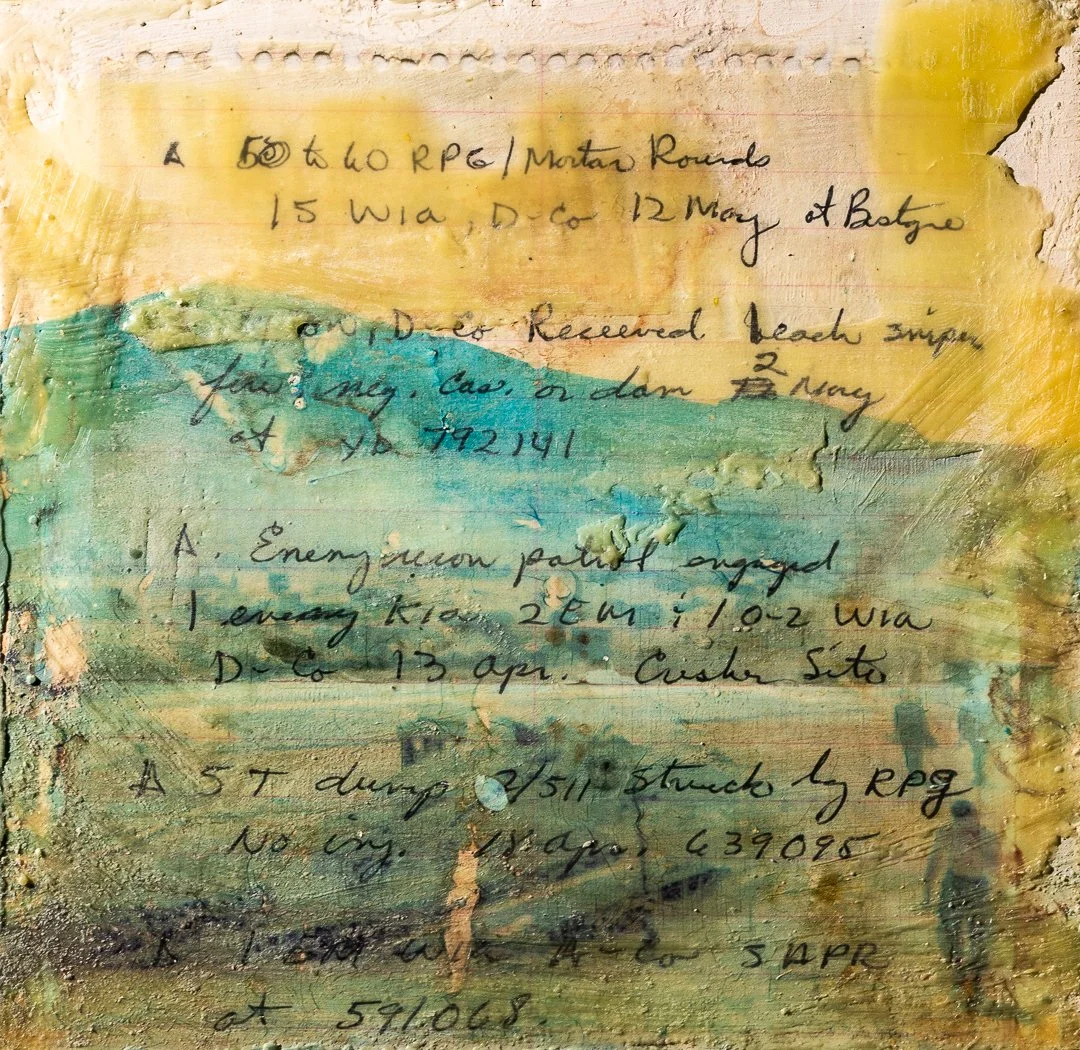 A 50 to 60 RPG/Mortar Rounds
15 WIA, D-Co 12 May at Bastogne
on, D-Co Received beach sniper
fire neg. Cas. or dam 2 May
at YD 792141
A. Enemy recon patrol engaged
1 enemy KIA 2 EM & 1 0-2 WIA
D-Co 13 Apr. Crusher Site
A 5T dump 2/511 Struck by RPG
No inj. 18 Apr. 639095
A 1 EM WIA A-Co 5 APR
at 591068.